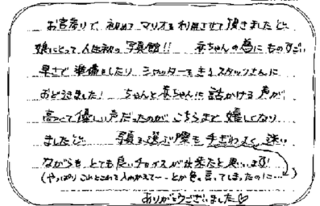 お宮参りで、初めてマリオを利用させて頂きましたが
娘にとって人生初の写真館!! 赤ちゃんの為にものすごい
早さで準備をしたり シャッターをきるスタッフさんに
おどろきました! ちゃんと赤ちゃんに話かける声が
高くて優しい声だったのが こちらまで嬉しくなり
ましたと 写真を選ぶ際も 手ぎわよく 迷い
ながらも、とても良いチョイスが出来たと思います!
(やっぱりこれとこれを入れかえて〜 とか色々言ってしまったのに…)
ありがとうございました♡